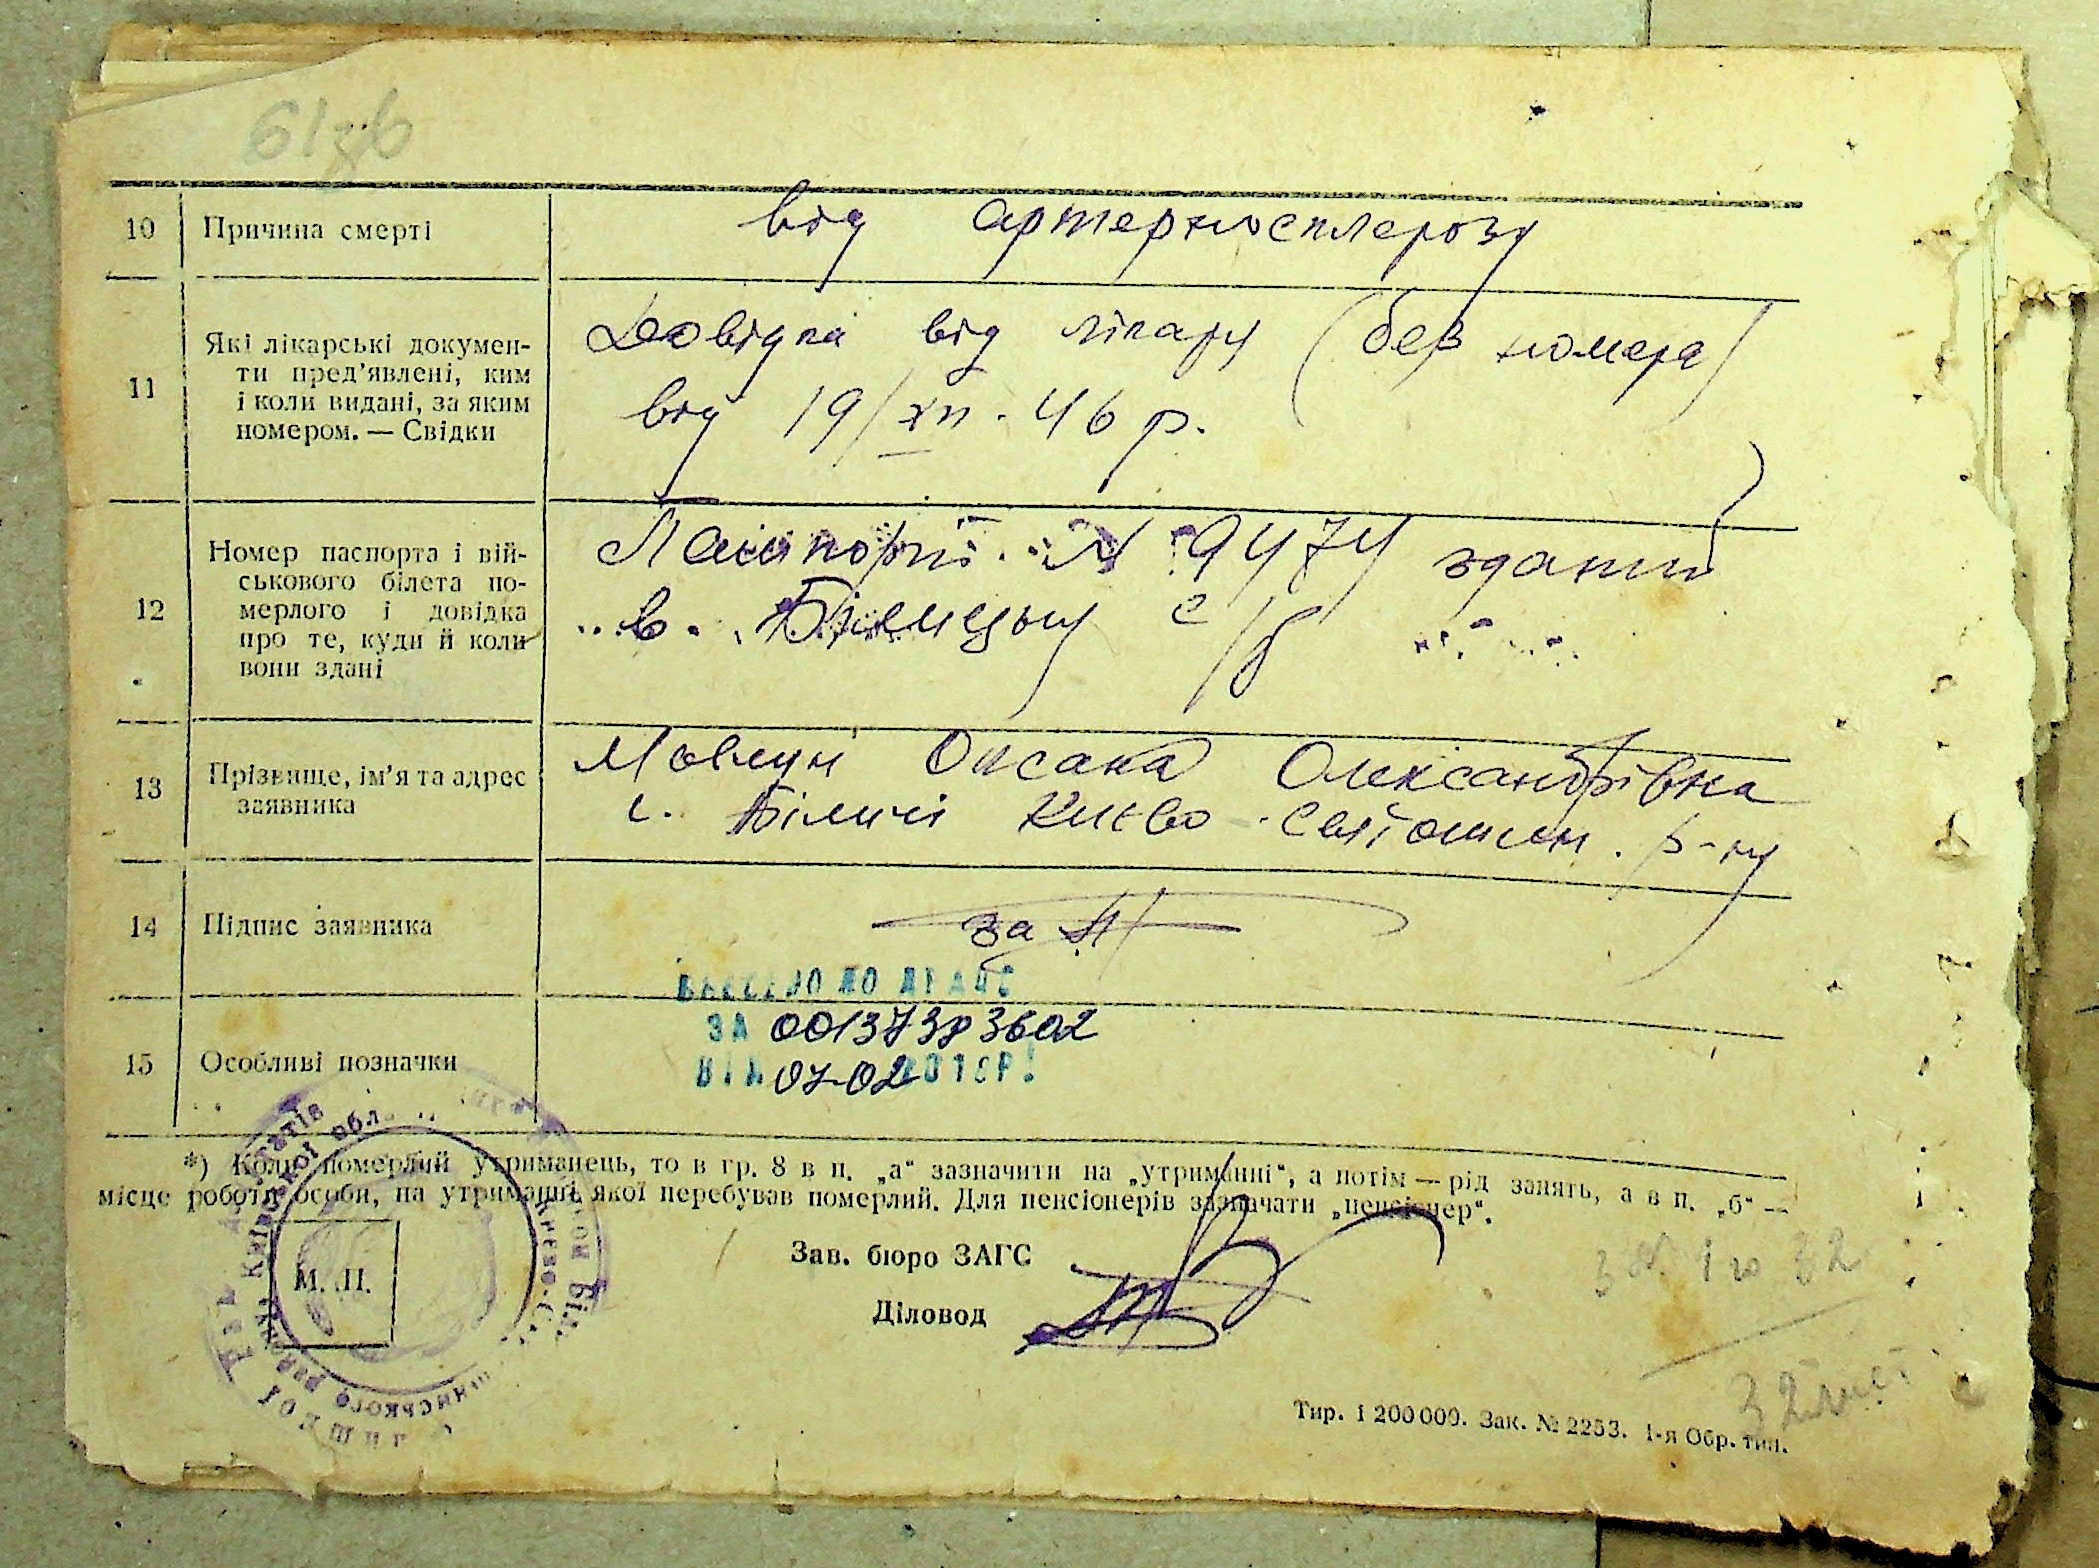 10 Причина смерті від артериосклерозу
11 Які лікарські докумен-
ти пред'явлені, ким
і коли видані, за яким
номером. — Свідки
Довідка від лікару (без номера)
від 19/XII-46 р.
12 Номер паспорта і вій-
ськового білета по-
мерлого і довідка
про те, куди й коли
вони здані
Пашпорт N 9474 зданий
в с/б
13 Прізвище, ім'я та адрес
заявника
Оксана Олександрівна
с. Біличі Києво-Святошин. р-ну
14 Підпис заявника за
15 Особливі позначки
ВНЕСЕНО ДО ДРАЦС
ЗА 00137383602
ВІД 07-02
*) Коли померлий утриманець, то в гр. 8 в п. „а“ зазначити на „утриманні“, а потім — рід занять, а в п. „б“ —
місце роботи особи, на утриманні якої перебував померлий. Для пенсіонерів зазначати „пенсіонер“.
М. П.
Київської обл.
Зав. бюро ЗАГС
Діловод
Тир. 1 200 000. Зак. № 2253. 1-я Обр. тип.